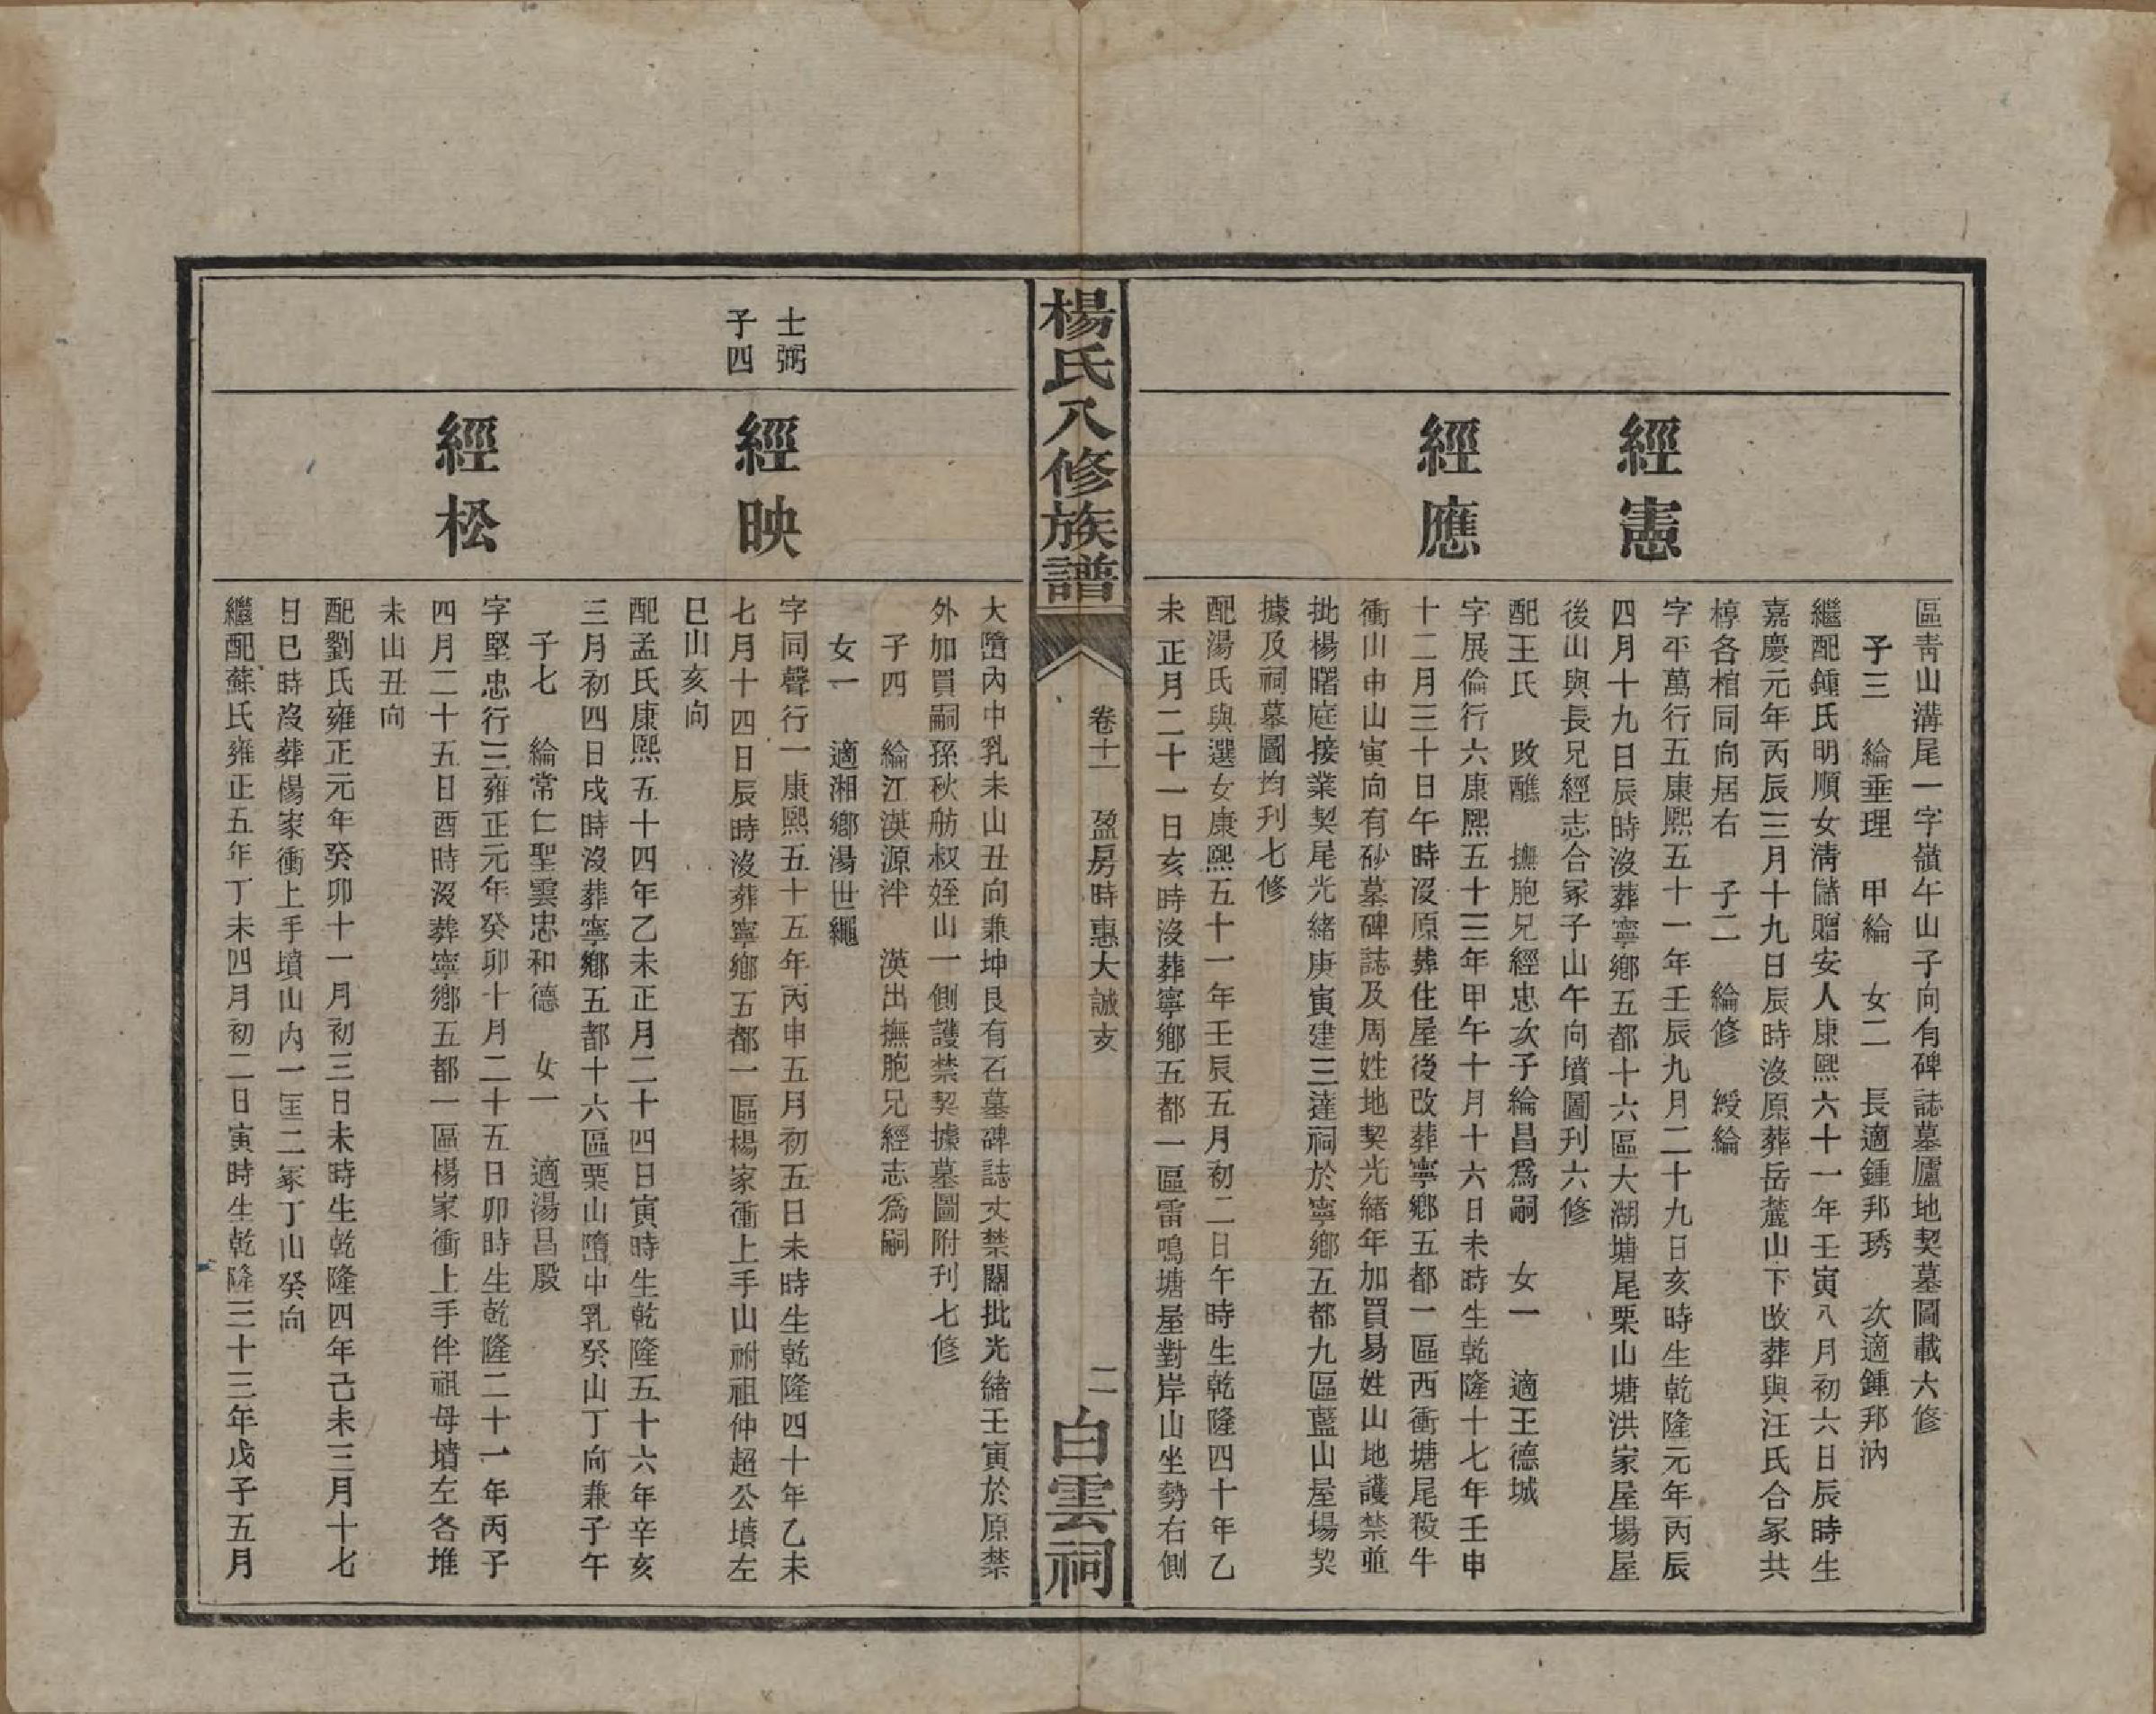 區靑山溝尾一字嶺午山子向有碑誌墓廬地契墓圖載六修
子三　綸垂理　甲綸　女二　長適鍾邦琇　次適鍾邦汭
繼配鍾氏明順女淸儲贈安人康熙六十一年壬寅八月初六日辰時生
嘉慶元年丙辰三月十九日辰時沒原葬岳麓山下改葬與汪氏合冢共
椁各棺同向居右　子二　綸修　綬綸
經憲
字平萬行五康熙五十一年壬辰九月二十九日亥時生乾隆元年丙辰
四月十九日辰時沒葬寧鄉五都十六區大湖塘尾栗山塘洪家屋場屋
後山與長兄經志合冢子山午向墳圖刋六修
配王氏　改醮　撫胞兄經忠次子綸昌爲嗣　女一　適王德城
經應
字展倫行六康熙五十三年甲午十月十六日未時生乾隆十七年壬申
十二月三十日午時沒原葬住屋後改葬寧鄉五都一區西衝塘尾殺牛
衝山申山寅向有砂墓碑誌及周姓地契光緒年加買易姓山地護禁並
批楊曙庭接業契尾光緒庚寅建三達祠於寧鄉五都九區藍山屋場契
據及祠墓圖均刋七修
配湯氏與選女康熙五十一年壬辰五月初二日午時生乾隆四十年乙
未正月二十一日亥時沒葬寧鄉五都一區雷鳴塘屋對岸山坐勢右側
楊氏八修族譜
卷十一　盈房時惠大誠支
二
白雲祠
大嶞內中乳未山丑向兼坤艮有石墓碑誌丈禁關批光緒壬寅於原禁
外加買嗣孫秋舫叔姪山一側護禁契據墓圖附刋七修
子四　綸江渶源泮　渶出撫胞兄經志爲嗣
女一　適湘鄉湯世繩
士弼
子四
經映
字同聲行一康熙五十五年丙申五月初五日未時生乾隆四十年乙未
七月十四日辰時沒葬寧鄉五都一區楊家衝上手山祔祖仲超公墳左
巳山亥向
配孟氏康熙五十四年乙未正月二十四日寅時生乾隆五十六年辛亥
三月初四日戌時沒葬寧鄉五都十六區栗山嶞中乳癸山丁向兼子午
子七　綸常仁聖雲忠和德　女一　適湯昌殷
經松
字堅忠行三雍正元年癸卯十月二十五日卯時生乾隆二十一年丙子
四月二十五日酉時沒葬寧鄉五都一區楊家衝上手伴祖母墳左各堆
未山丑向
配劉氏雍正元年癸卯十一月初三日未時生乾隆四年己未三月十七
日巳時沒葬楊家衝上手墳山內一匡二冢丁山癸向
繼配蘇氏雍正五年丁未四月初二日寅時生乾隆三十三年戊子五月